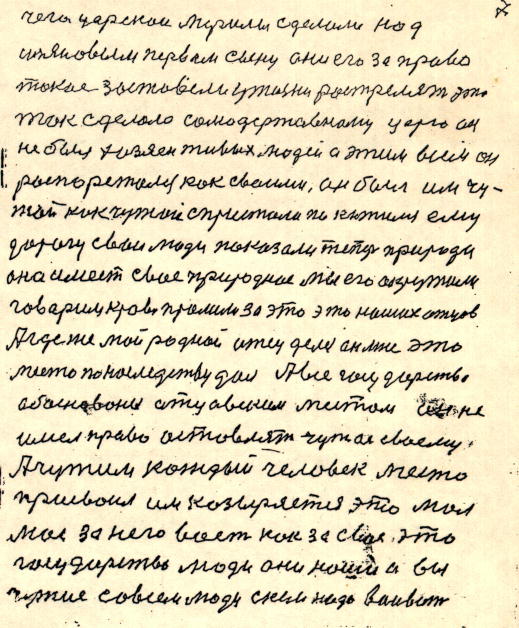 чего царской мерили сделали над
первым сыну они его за право
такое заставели ужизни растрелят это
так сделало самодержавному царю он
не был хозяен живых людей а этим всем он
роспорежался как своими, он был им чу-
жой как чужой с пристала по ему
дорогу свои люди показали теперь природи
она имеет свое природное мы его окружили
говарим кровь пролили за это это наших отцов
А где же мой родной отец дел он мне это
место по наследству дал А все государство
обоснованно отцовским местом он не
имел право оставлят чужое своему.
А чужим каждый человек место
присвоил им козыряется это мол
мое за него воет как за свое, это
государство люди они наши а вы
чужие совсем люди с кем надо воиват